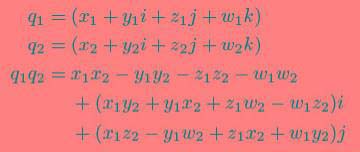 q₁ = (x₁ + y₁i + z₁j + w₁k)
q₂ = (x₂ + y₂i + z₂j + w₂k)
q₁q₂ = x₁x₂ − y₁y₂ − z₁z₂ − w₁w₂
+ (x₁y₂ + y₁x₂ + z₁w₂ − w₁z₂)i
+ (x₁z₂ − y₁w₂ + z₁x₂ + w₁y₂)j